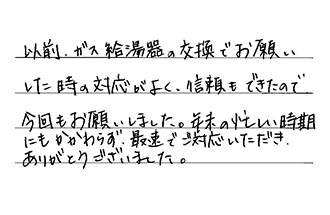 以前、ガス給湯器の交換でお願い
した時の対応がよく、信頼もできたので
今回もお願いしました。年末の忙しい時期
にもかかわらず、最速でご対応いただき、
ありがとうございました。